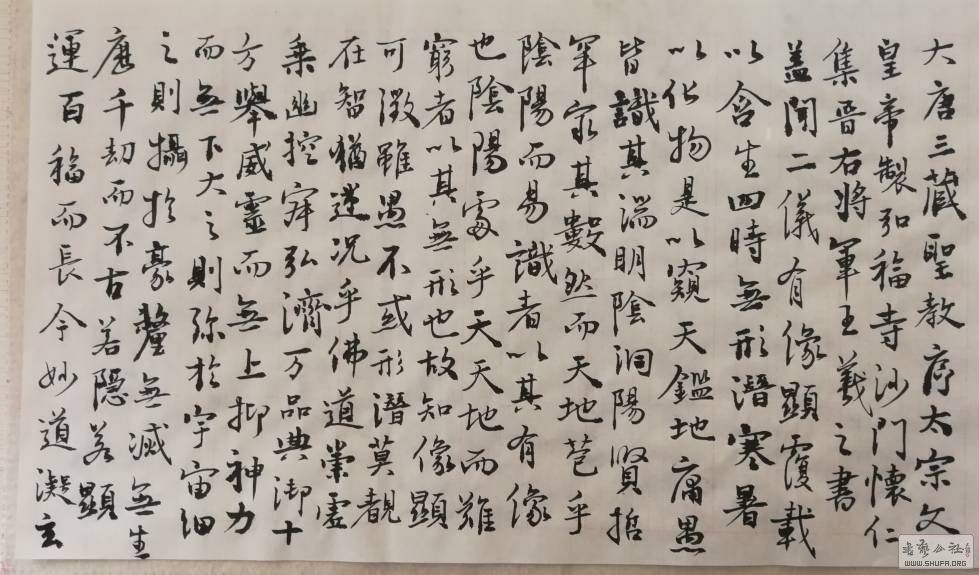 大唐三藏聖教序太宗文
皇帝製弘福寺沙門懷仁
集晋右將軍王羲之書
盖聞二儀有像顯覆載
以含生四時無形潛寒暑
以化物是以窺天鑑地庸愚
皆識其端明陰洞陽賢哲
罕窮其數然而天地苞乎
陰陽而易識者以其有像
也陰陽處乎天天地而難
窮者以其無形也故知像顯
可徵雖愚不或形潛莫覩
在智猶迷況乎佛道崇虛
乘幽控寂弘濟万品典御十
方舉威靈而無上抑神力
而無下大之則弥於宇宙細
之則攝於豪釐無滅無生
歷千劫而不古若隱若顯
運百福而長今妙道凝玄
書藝公社
WWW.SHUFA.ORG